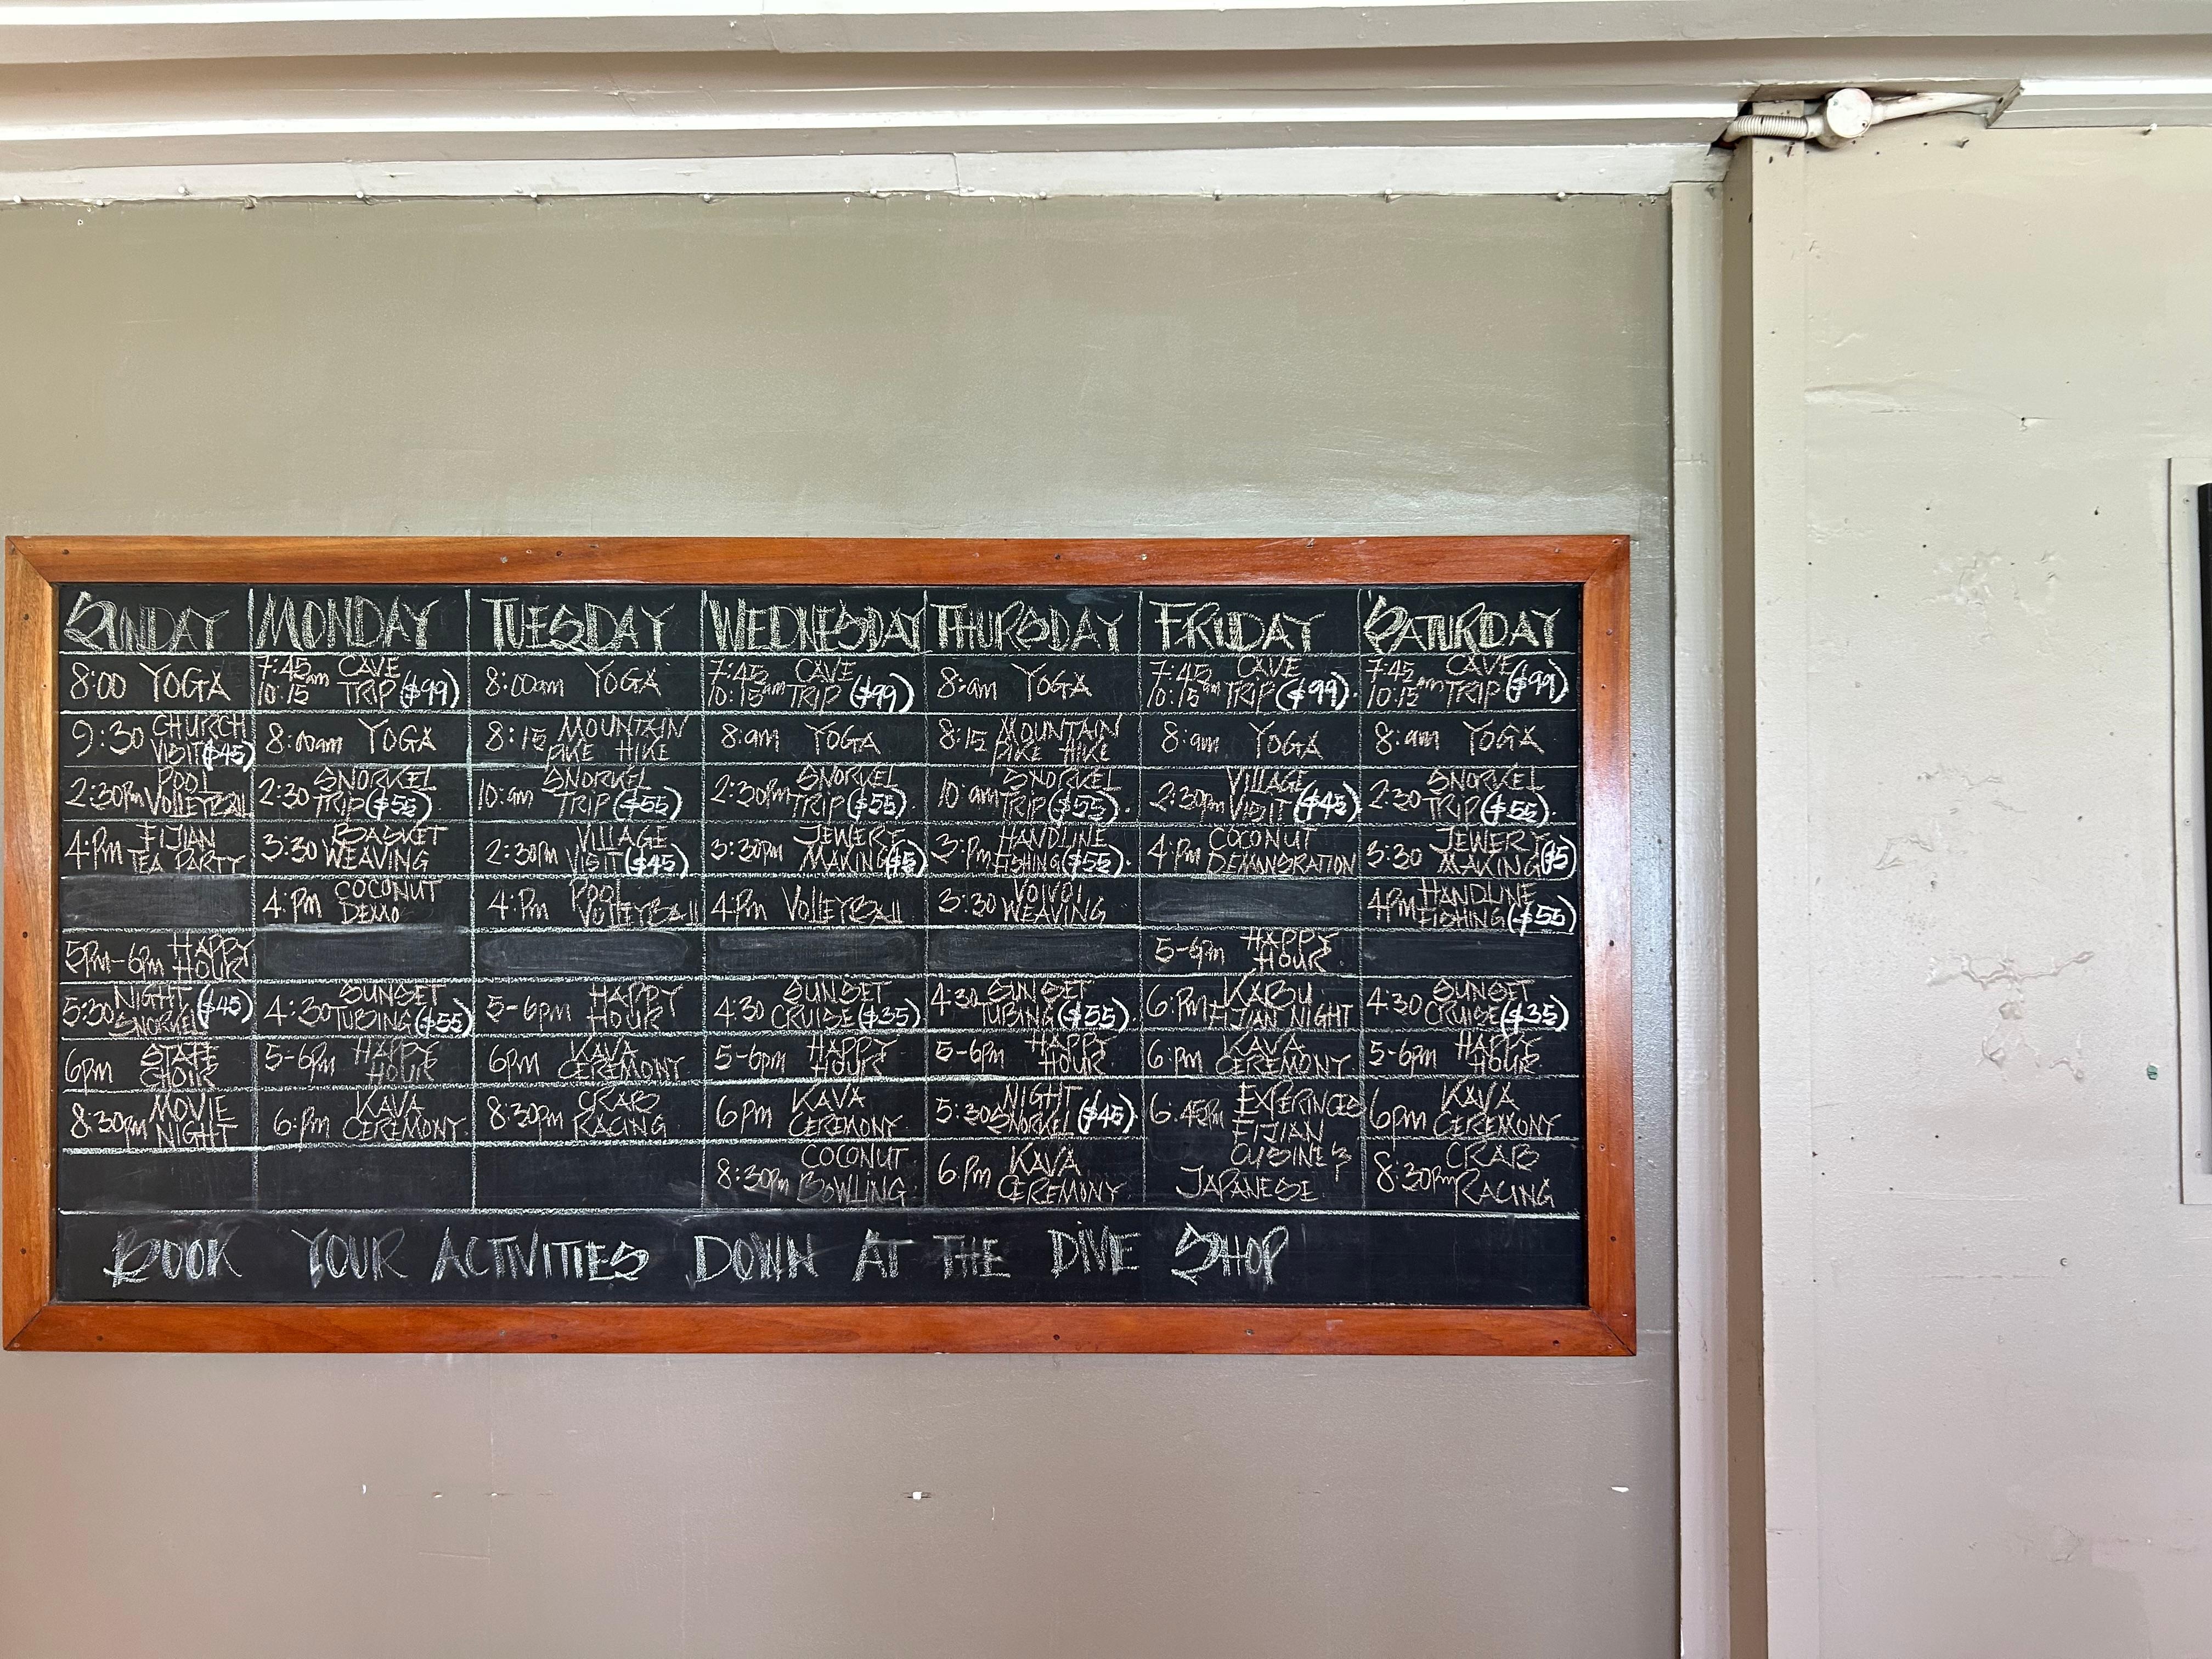 SUNDAY MONDAY TUESDAY WEDNESDAY THURSDAY FRIDAY SATURDAY
8:00 YOGA
7:45am CAVE
10:15 TRIP ($99)
8:00am YOGA
7:45 CAVE
10:15am TRIP ($99)
8:am YOGA
7:45 CAVE
10:15am TRIP ($99).
7:45 CAVE
10:15am TRIP ($99)
9:30 CHURCH
VISIT ($45)
8:00am YOGA
8:15 MOUNTAIN
PIKE HIKE
8:am YOGA
8:15 MOUNTAIN
PIKE HIKE
8:am YOGA
8:am YOGA
2:30pm POOL
VOLLEYBALL
2:30 SNORKEL
TRIP ($55).
10:am SNORKEL
TRIP ($55)
2:30pm SNORKEL
TRIP ($55).
10:am SNORKEL
TRIP ($55).
2:30pm VILLAGE
VISIT ($45)
2:30 SNORKEL
TRIP ($55).
4:Pm FIJIAN
TEA PARTY
3:30 BASKET
WEAVING
2:30pm VILLAGE
VISIT ($45)
3:30pm JEWERY
MAKING ($5)
3:Pm HANDLINE
FISHING ($55).
4:Pm COCONUT
DEMANSRATION
3:30 JEWERY
MAKING ($5)
4:Pm COCONUT
DEMO
4:Pm POOL
VOLLEYBALL
4Pm VOLLEYBALL
3:30 VOIVOI
WEAVING
4Pm HANDLINE
FISHING ($55)
5Pm-6pm HAPPY
HOUR
5-6pm HAPPY
HOUR
5:30 NIGHT ($45)
SNORKEL
4:30 SUNSET
TUBING ($55)
5-6pm HAPPY
HOUR
4:30 SUNSET
CRUISE ($35)
4:30 SUNSET
TUBING ($55).
6:Pm KABU
FIJIAN NIGHT
4:30 SUNSET
CRUISE ($35)
6pm STAFF
CHOIR
5-6Pm HAPPY
HOUR
6pm KAVA
CEREMONY
5-6pm HAPPY
HOUR
5-6Pm HAPPY
HOUR
6:pm KAVA
CEREMONY
5-6pm HAPPY
HOUR
8:30pm MOVIE
NIGHT
6:Pm KAVA
CEREMONY
8:30pm CRAB
RACING
6Pm KAVA
CEREMONY
5:30 NIGHT
SNORKEL ($45)
6:45pm EXPERINCE
FIJIAN
CUISINE &
JAPANESE
6pm KAVA
CEREMONY
8:30pm COCONUT
BOWLING
6:Pm KAVA
CEREMONY
8:30pm CRAB
RACING
BOOK YOUR ACTIVITIES DOWN AT THE DIVE SHOP